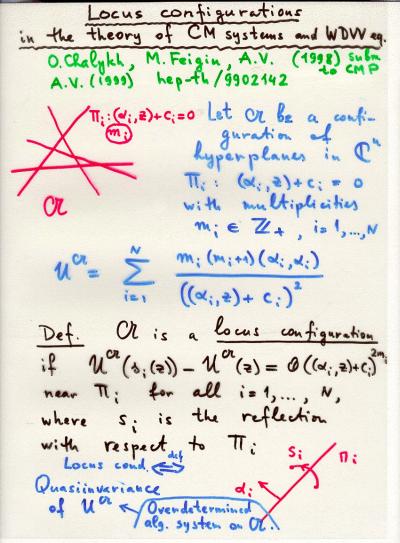 Locus configurations
in the theory of CM systems and WDVV eq.
O. Chalykh, M. Feigin, A.V. (1998) subm. to CMP
A.V. (1999) hep-th/9902142
Πᵢ: (αᵢ, z) + cᵢ = 0
mᵢ
𝒜
Let 𝒜 be a confi-
guration of
hyperplanes in ℂⁿ
Πᵢ: (αᵢ, z) + cᵢ = 0
with multiplicities
mᵢ ∈ ℤ₊, i = 1,..., N
U^𝒜 = Σ_{i=1}^{N} mᵢ(mᵢ+1)(αᵢ,αᵢ) / ((αᵢ,z)+cᵢ)²
Def. 𝒜 is a locus configuration
if U^𝒜(sᵢ(z)) – U^𝒜(z) = O((αᵢ,z)+cᵢ)^{2mᵢ}
near Πᵢ for all i = 1,..., N,
where sᵢ is the reflection
with respect to Πᵢ
Locus cond. ⟺ def
Quasiinvariance
of U^𝒜
Overdetermined
alg. system on 𝒜.
αᵢ
sᵢ
Πᵢ